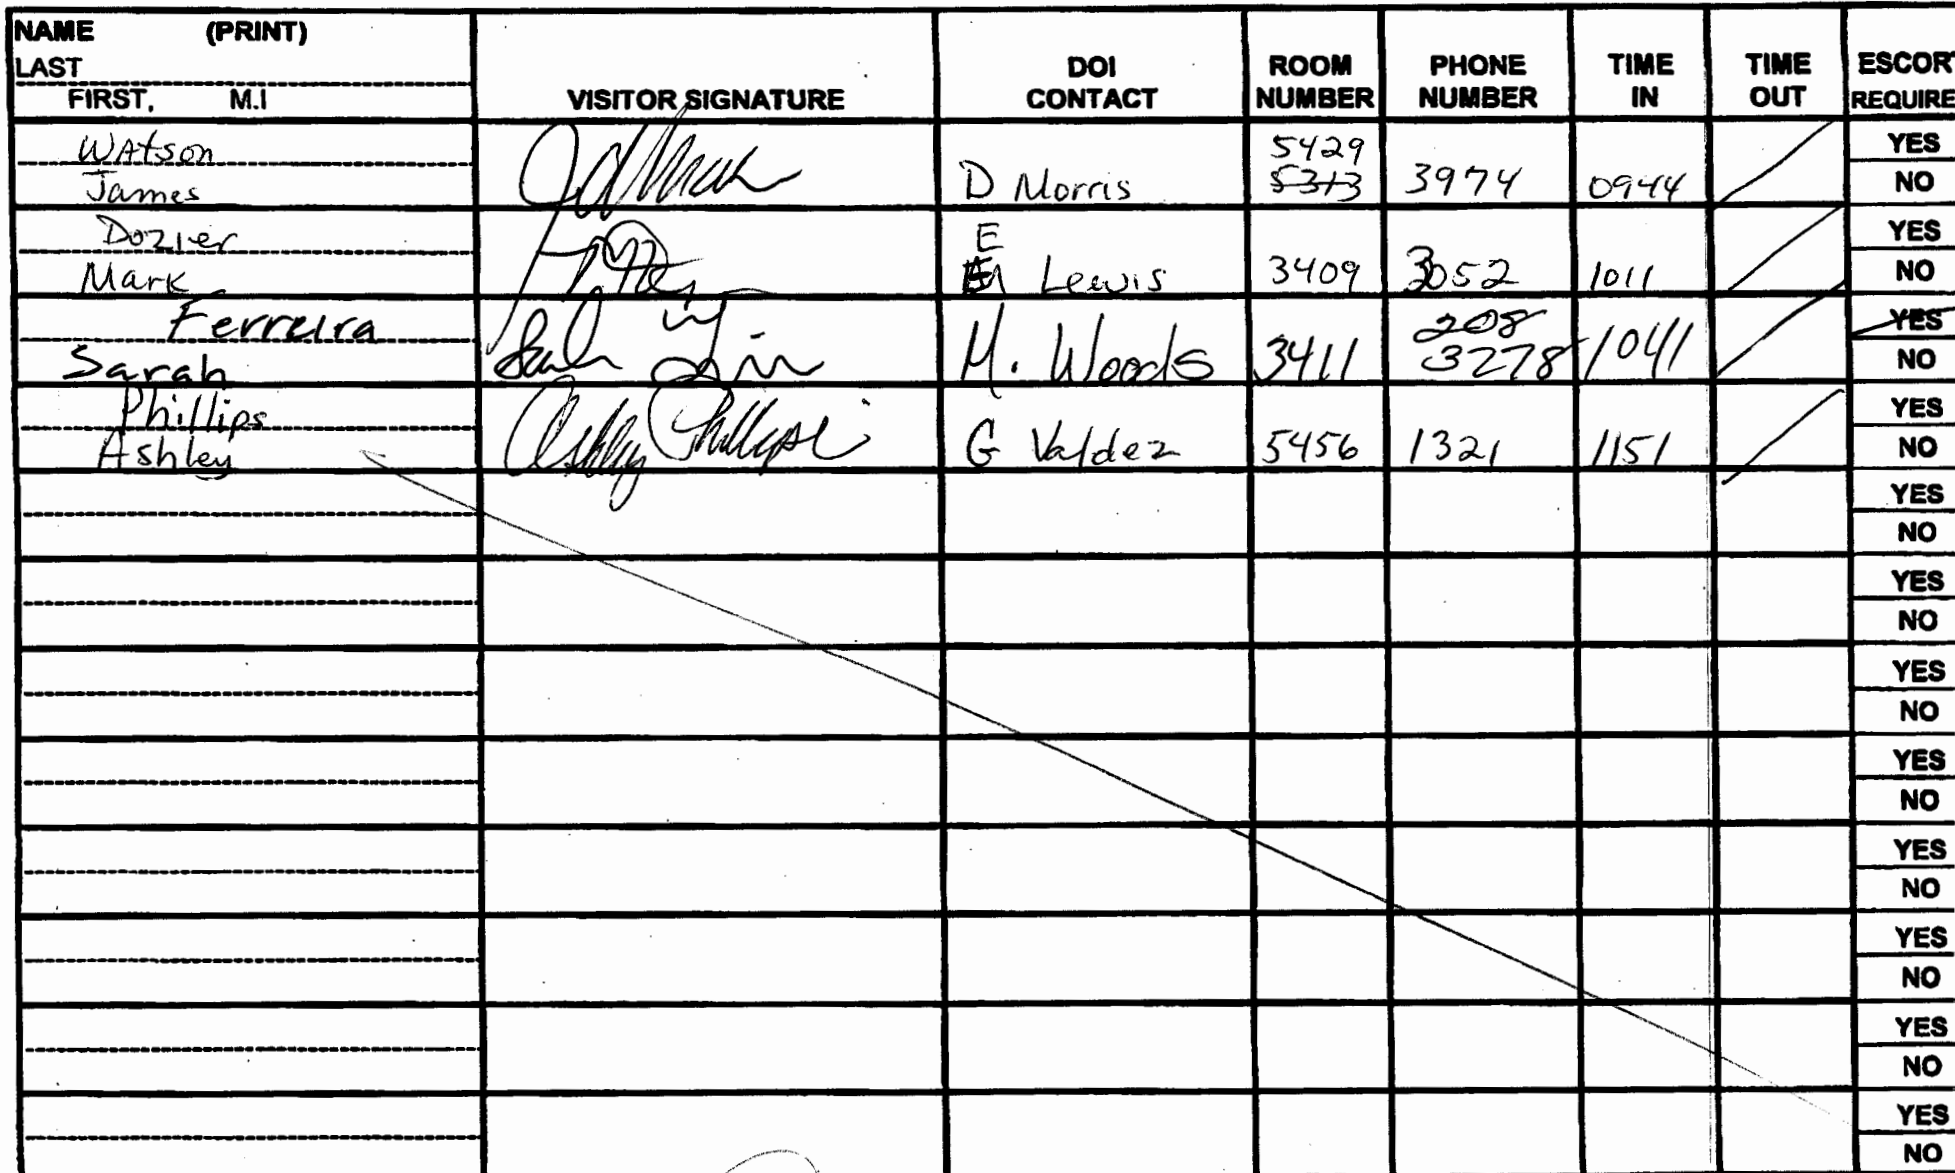 NAME (PRINT)
LAST
FIRST, M.I
VISITOR SIGNATURE
DOI
CONTACT
ROOM
NUMBER
PHONE
NUMBER
TIME
IN
TIME
OUT
ESCORT
REQUIRE
Watson
James
D Morris
5429
5313
3974
0944
YES
NO
Dozier
Mark
E
Lewis
3409
3052
1011
YES
NO
Ferreira
Sarah
Sarah
M. Woods
3411
208
3278
1041
YES
NO
Phillips
Ashley
Ashley Phillips
G Valdez
5456
1321
1151
YES
NO
YES
NO
YES
NO
YES
NO
YES
NO
YES
NO
YES
NO
YES
NO
YES
NO